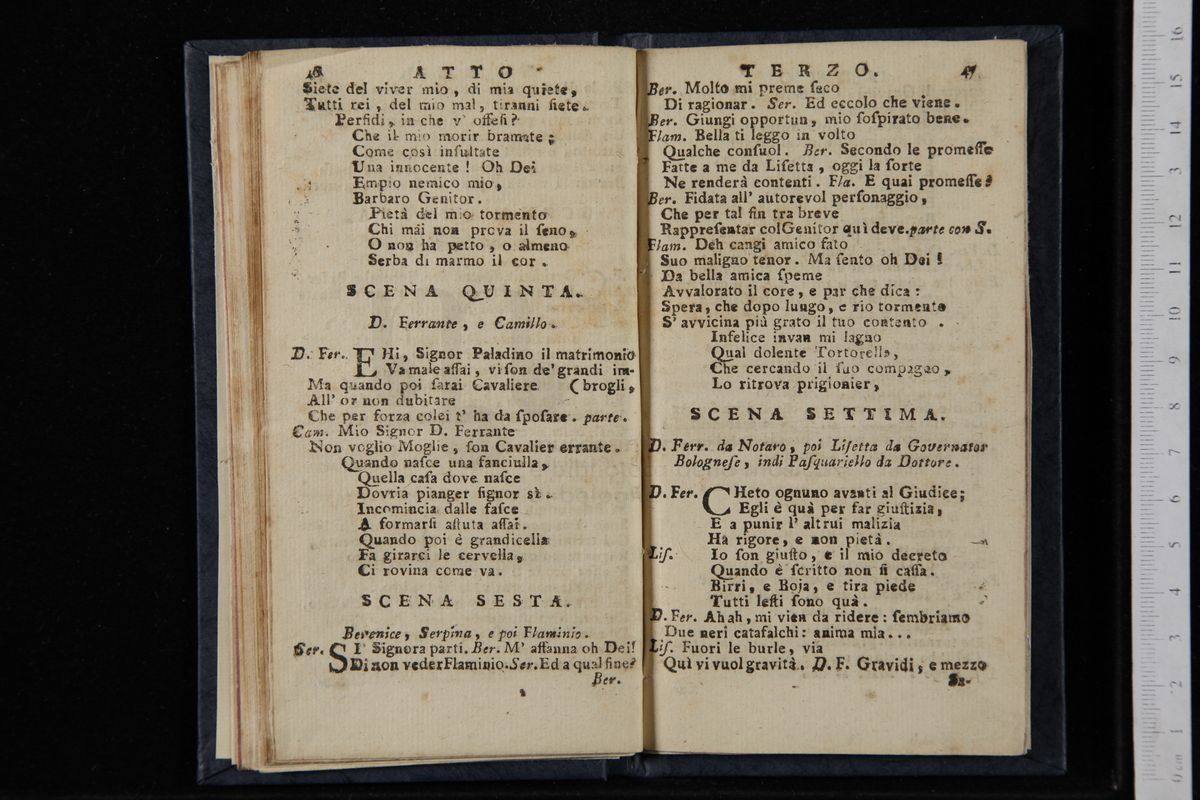 46 ATTO
Siete del viver mio, di mia quiete,
Tutti rei, del mio mal, tiranni siete.
Perfidi, in che v' offesi?
Che il mio morir bramate;
Come così insultate
Una innocente! Oh Dei
Empio nemico mio,
Barbaro Genitor.
Pietà del mio tormento
Chi mái non prova il seno,
O non ha petto, o almeno
Serba di marmo il cor.
SCENA QUINTA.
D. Ferrante, e Camillo.
D. Fer. EHi, Signor Paladino il matrimonio
Va male assai, vi son de' grandi im-
Ma quando poi sarai Cavaliere (brogli,
All' or non dubitare
Che per forza colei t' ha da sposare. parte.
Cam. Mio Signor D. Ferrante
Non voglio Moglie, son Cavalier errante.
Quando nasce una fanciulla,
Quella casa dove nasce
Dovria pianger signor sì.
Incomincia dalle fasce
A formarsi astuta assai.
Quando poi è grandicella
Fa girarci le cervella,
Ci rovina come va.
SCENA SESTA.
Berenice, Serpina, e poi Flaminio.
Ser. SI' Signora parti. Ber. M' affanna oh Dei!
Di non veder Flaminio. Ser. Ed a qual fine?
Ber.
TERZO. 47
Ber. Molto mi preme seco
Di ragionar. Ser. Ed eccolo che viene.
Ber. Giungi opportun, mio sospirato bene.
Flam. Bella ti leggo in volto
Qualche consuol. Ber. Secondo le promesse
Fatte a me da Lisetta, oggi la sorte
Ne renderà contenti. Fla. E quai promesse?
Ber. Fidata all' autorevol personaggio,
Che per tal fin tra breve
Rappresentar col Genitor quì deve. parte con S.
Flam. Deh cangi amico fato
Suo maligno tenor. Ma sento oh Dei!
Da bella amica speme
Avvalorato il core, e par che dica:
Spera, che dopo lungo, e rio tormento
S' avvicina più grato il tuo contento.
Infelice invan mi lagno
Qual dolente Tortorella,
Che cercando il suo compagno,
Lo ritrova prigionier,
SCENA SETTIMA.
D. Ferr. da Notaro, poi Lisetta da Governator
Bolognese, indi Pasquariello da Dottore.
D. Fer. CHeto ognuno avanti al Giudice;
Egli è quà per far giustizia,
E a punir l' altrui malizia
Ha rigore, e non pietà.
Lis. Io son giusto, e il mio decreto
Quando è scritto non si cassa.
Birri, e Boja, e tira piede
Tutti lesti sono quà.
D. Fer. Ah ah, mi vien da ridere: sembriamo
Due neri catafalchi: anima mia...
Lis. Fuori le burle, via
Quì vi vuol gravità. D. F. Gravidi, e mezzo